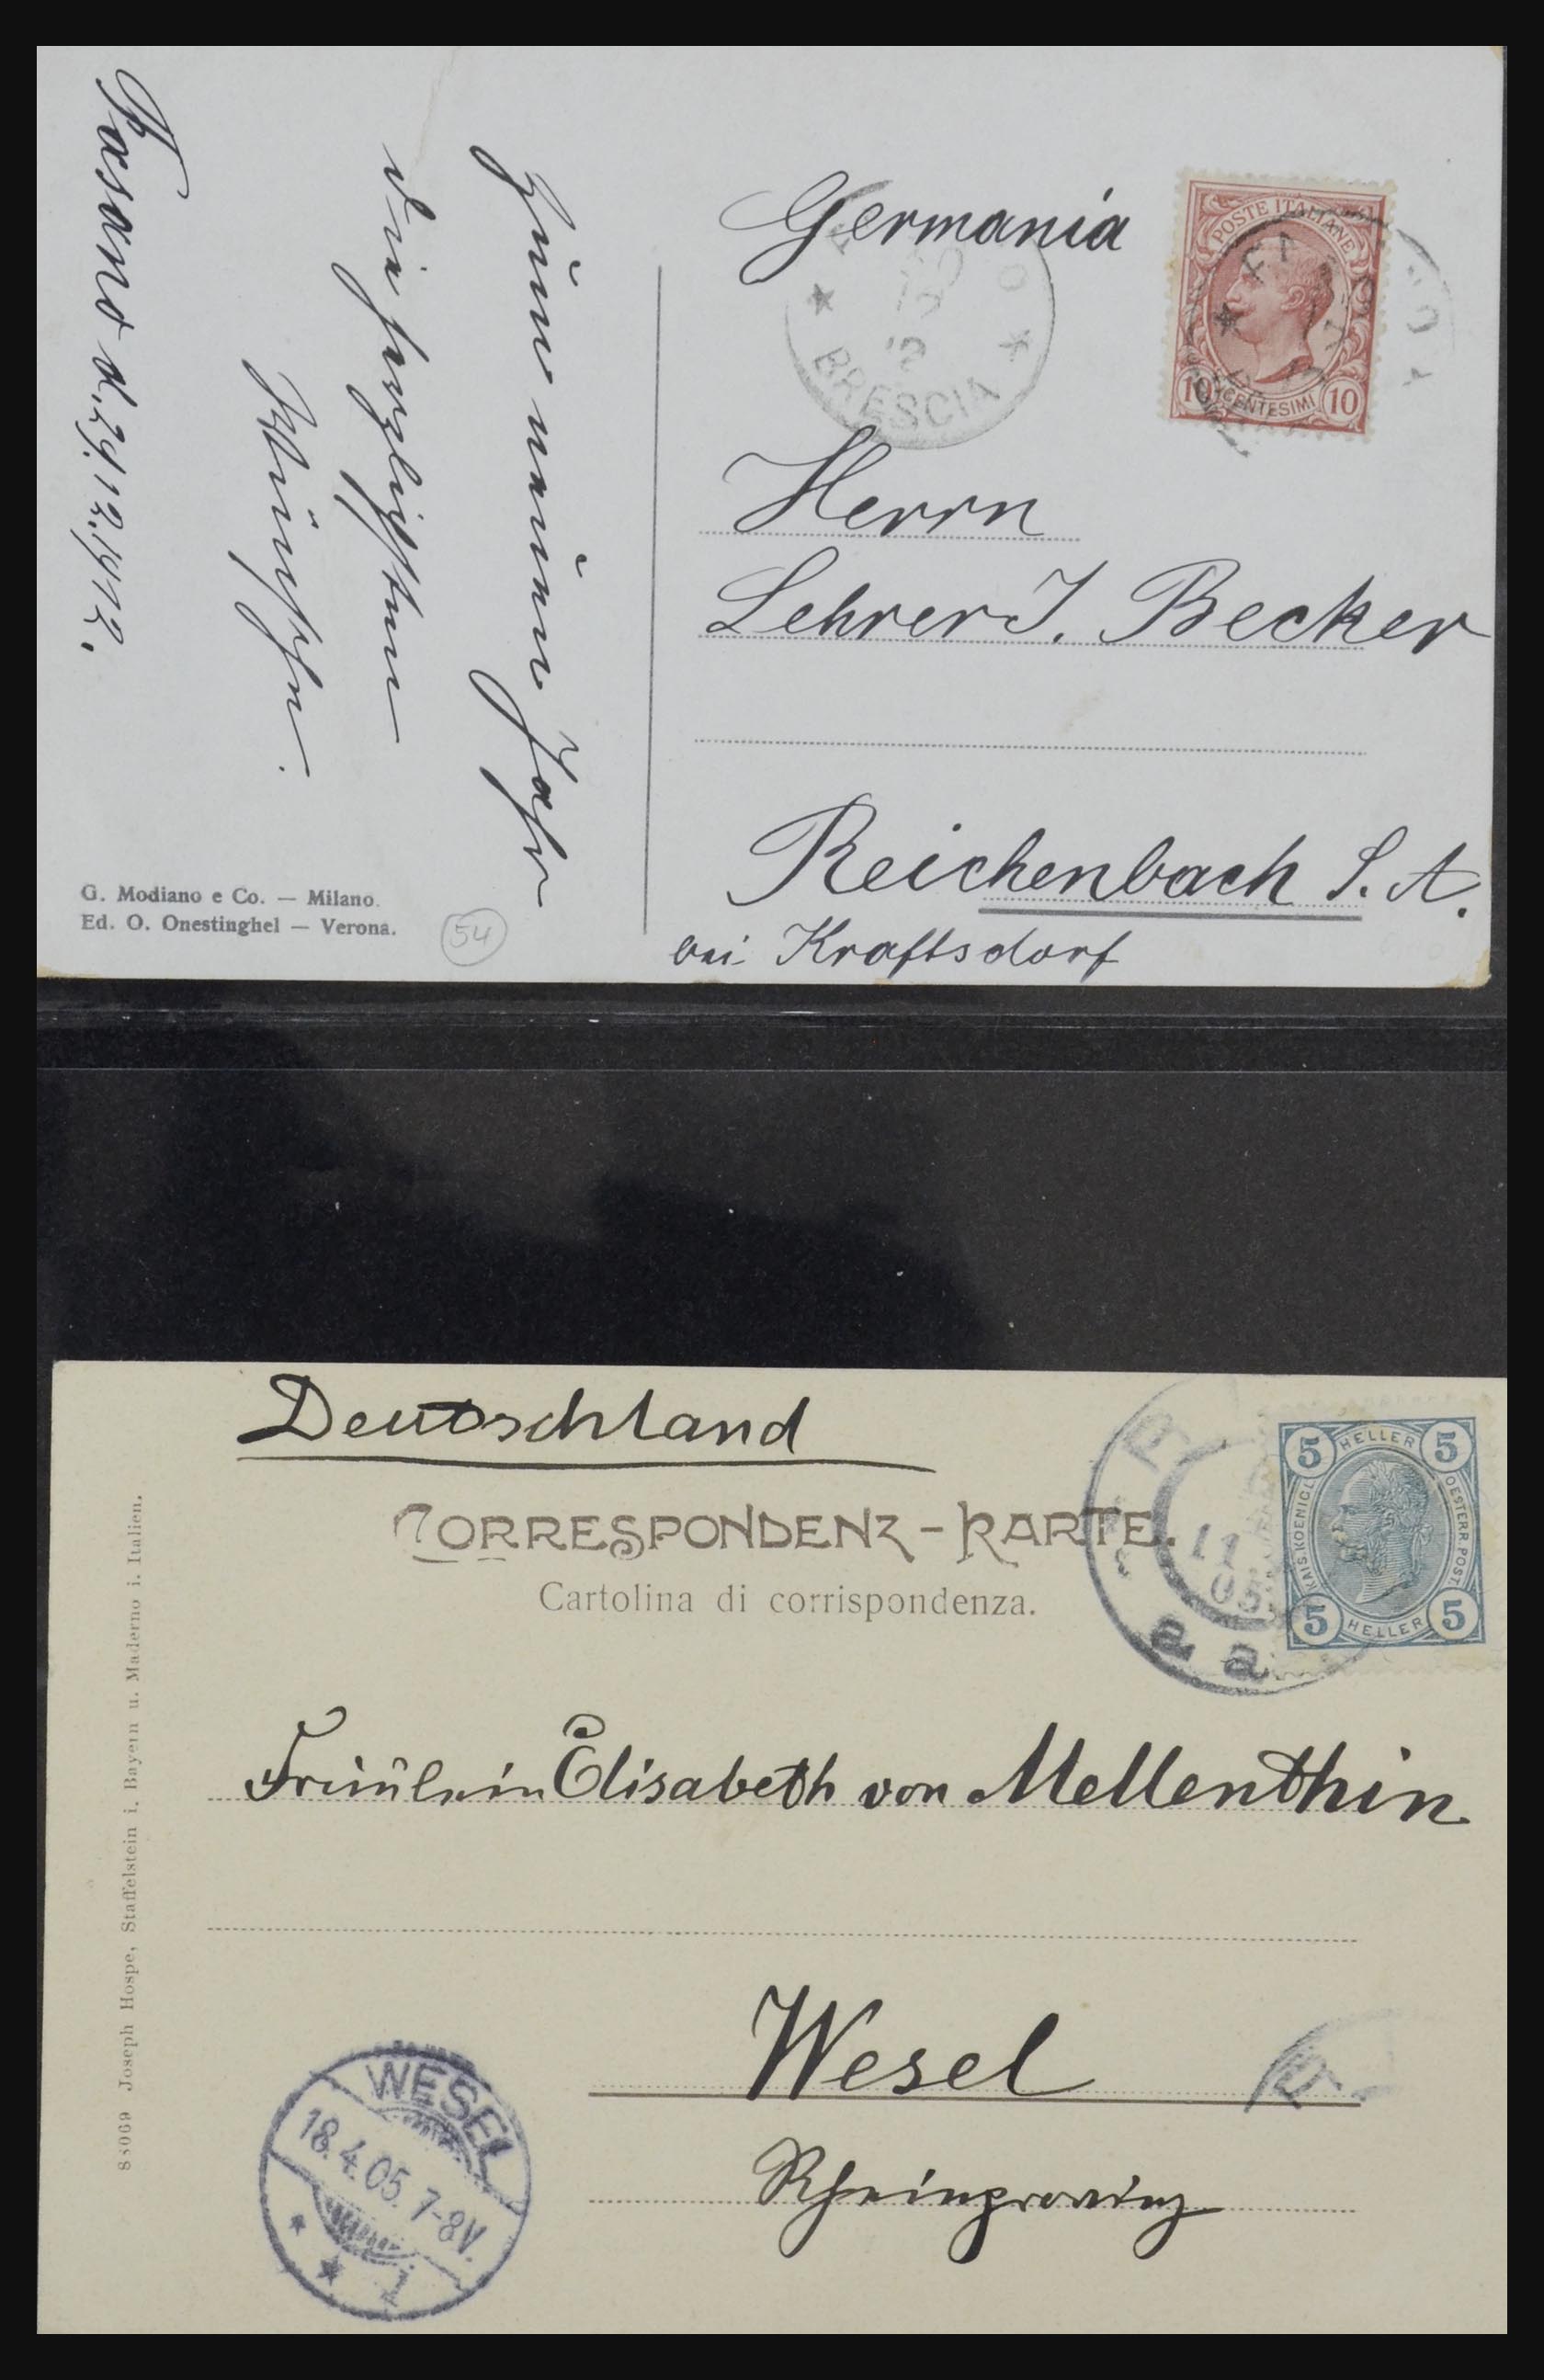 Germania
POSTE ITALIANE
10 CENTESIMI 10
BRESCIA
12
Herrn
Lehrer J. Becker
Reichenbach S. A.
bei Kraftsdorf
Zum neuen Jahr
die herzlichsten
Wünsche.
Fasano d. 29.12.1912.
G. Modiano e Co. — Milano.
Ed. O. Onestinghel — Verona.
54
Deutschland
CORRESPONDENZ-KARTE.
Cartolina di corrispondenza.
5 HELLER 5
KAIS. KOENIGL. OESTERR. POST.
5 HELLER 5
11
05
a a
Fräulein Elisabeth von Mellenthin
Wesel
Rheinprovinz
WESEL
18.4.05. 7-8V.
* * 1
88069 Joseph Hospe, Staffelstein i. Bayern u. Maderno i. Italien.